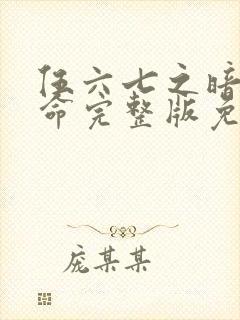 伍六七之暗
命完整版免
庞某某